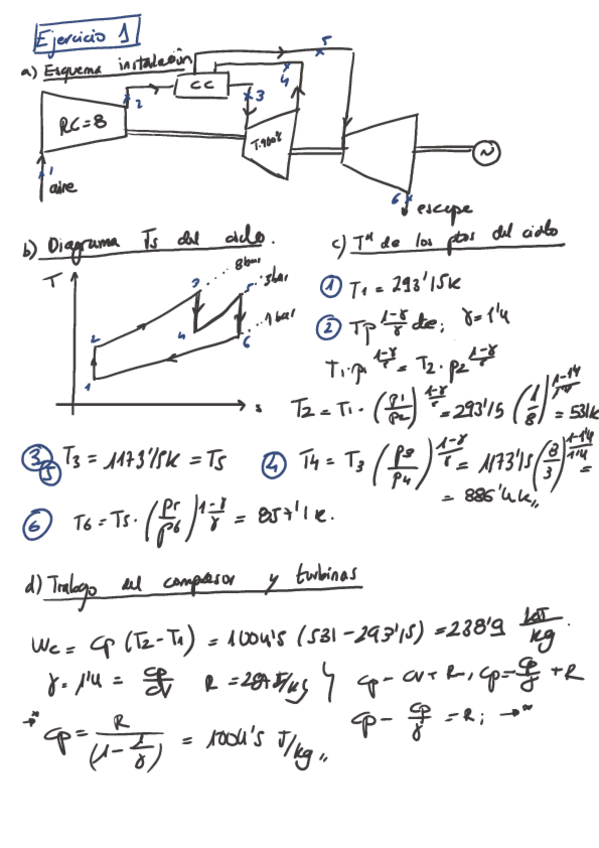 Ejercicio 1
a) Esquema instalación
5
CC
4
2
3
RC=8
T.900ºC
N
1
aire
6
escape
b) Diagrama Ts del ciclo.
c) Tª de los ptos del ciclo
T
3
8bar
5
3bar
1bar
2
4
6
1
s
① T1 = 293'15K
② Tp^(1-γ)/γ = cte; γ=1'4
T1·p1^(1-γ)/γ = T2·p2^(1-γ)/γ
T2 = T1·(p1/p2)^(1-γ)/γ = 293'15 (1/8)^(1-1'4)/1'4 = 531K
③ ⑤ T3 = 1173'15K = T5
④ T4 = T3 (p3/p4)^(1-γ)/γ = 1173'15 (8/3)^(1-1'4)/1'4 =
= 886'4K
⑥ T6 = T5·(p5/p6)^(1-γ)/γ = 857'1K.
d) Trabajo del compresor y turbinas
Wc = cp (T2-T1) = 1004'5 (531-293'15) = 238'9 kJ/kg.
γ = 1'4 = cp/cv R = 287J/kg cp = cv+R → cp = cp/γ + R
cp - cp/γ = R; →*
→* cp = R/(1-1/γ) = 1004'5 J/kg